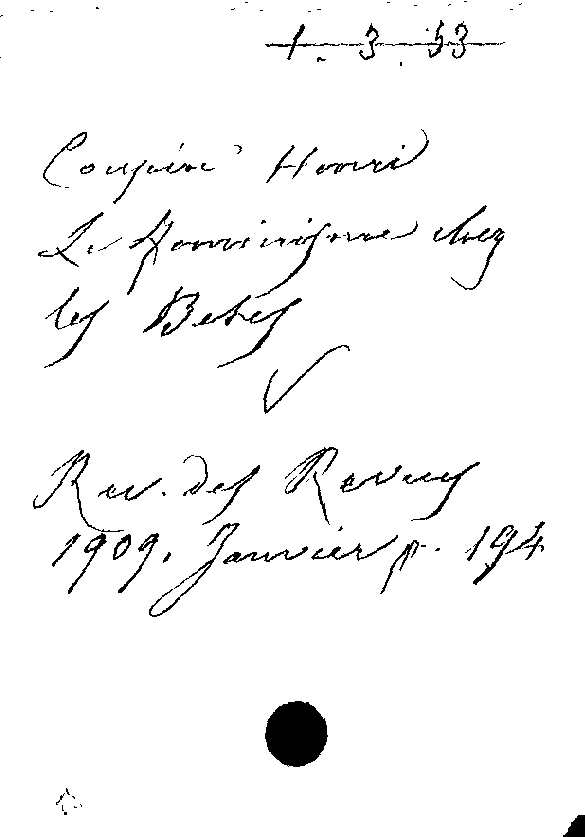 1. 3. 53
Coupin Henri
Le Feminisme chez
les Betes
Rev. des Revues
1909. Janvier p. 194